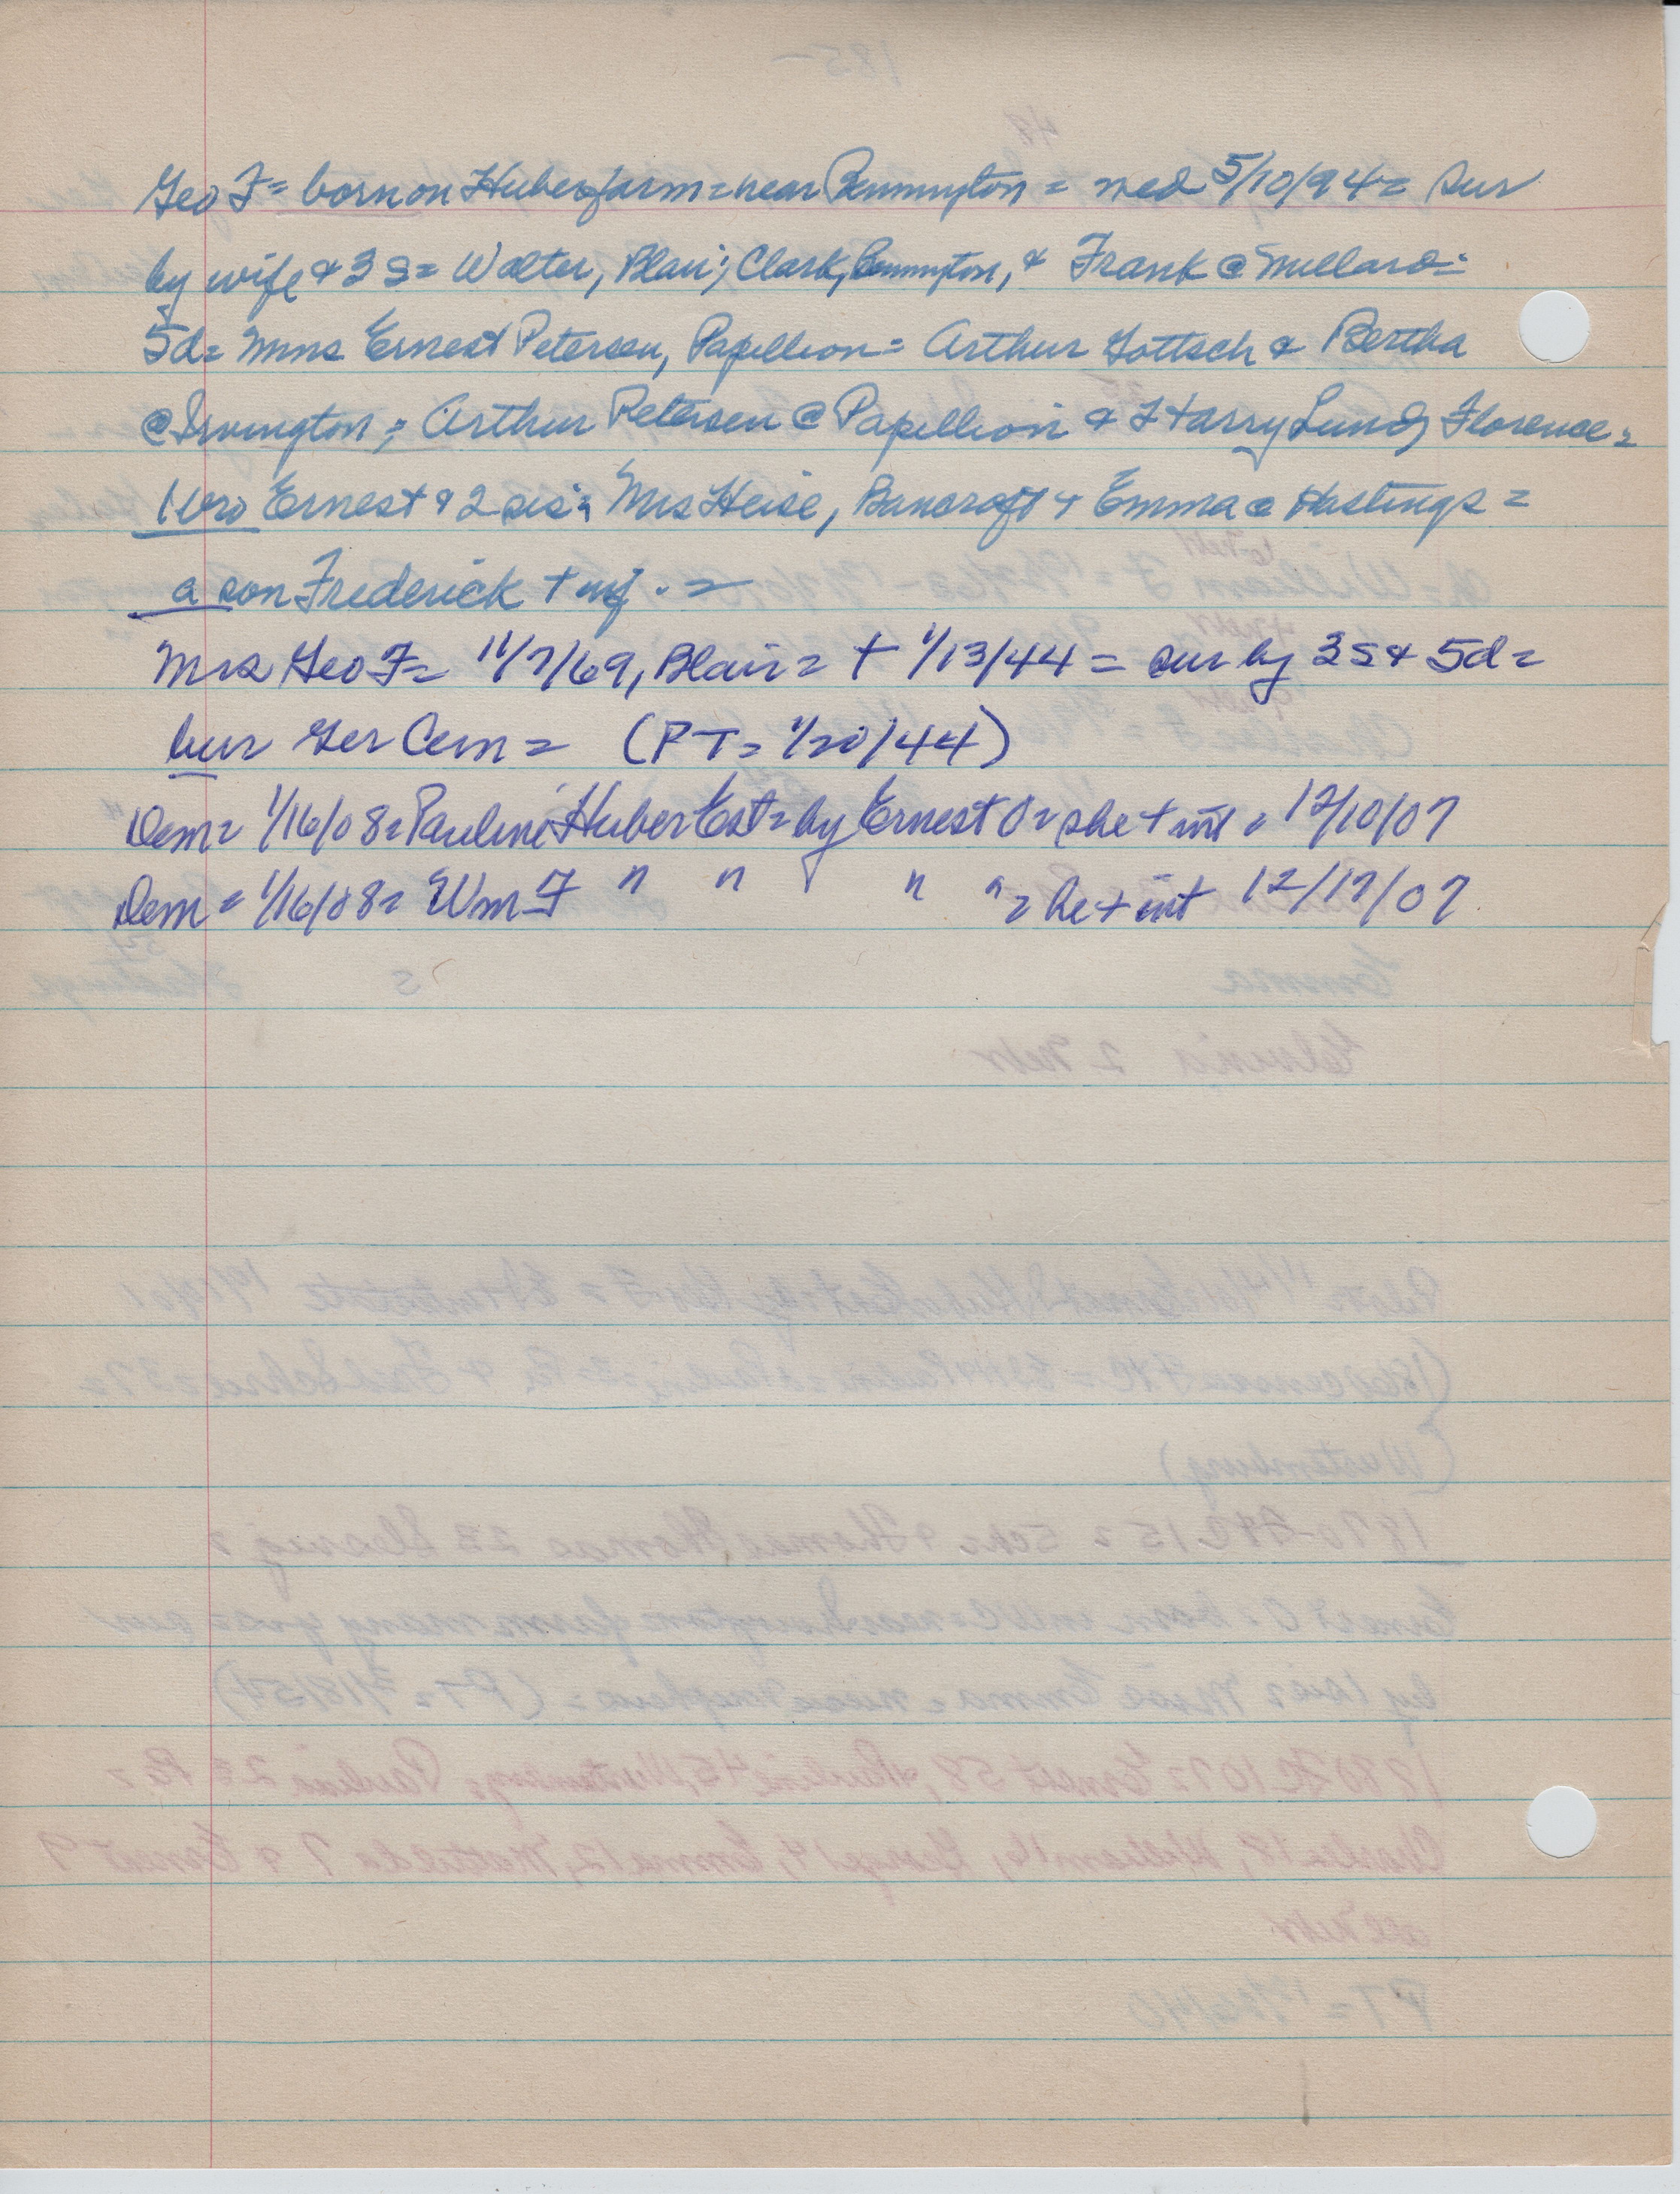 Geo F = born on Huber farm = near Bennington = med 5/10/94 = sur
by wife & 3 s = Walter, Blair; Clark, Bennington, & Frank @ Millard =
5d = Mms Ernest Petersen, Papillion = Arthur Gottsch & Bertha
@ Irvington; Arthur Petersen @ Papillion & Harry Lund, Florence =
1 bro Ernest & 2 sis = Mrs Heise, Bancroft & Emma @ Hastings =
a son Frederick + inf. =
Mrs Geo F = 11/7/69, Blair = + 1/13/44 = sur by 3s & 5d =
bur Ger Cem = (PT = 1/20/44)
Dem = 1/16/08 = Pauline Huber Est = by Ernest O = she + int = 12/10/07
Dem = 1/16/08 = Wm F " " " " = he + int 12/17/07